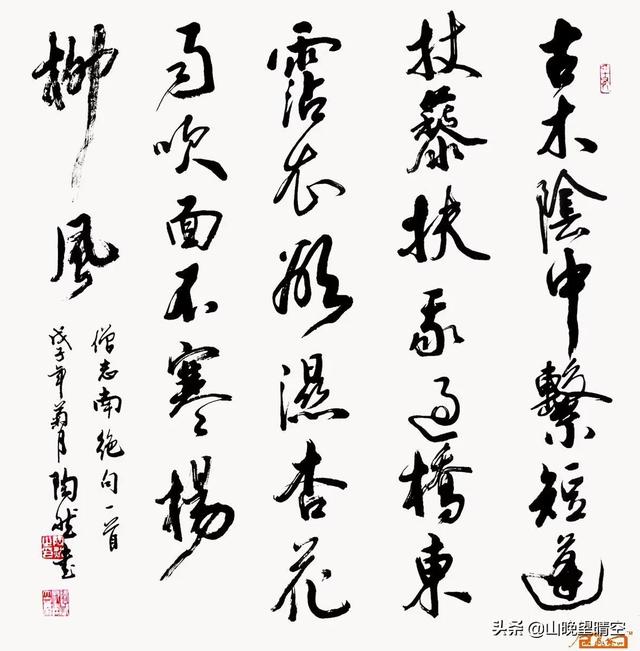 古木陰中繫短蓬
杖藜扶我過橋東
霑衣欲濕杏花
雨吹面不寒楊
柳風
僧志南絕句一首
戊子年菊月陶然書
头条 @山晚望晴空